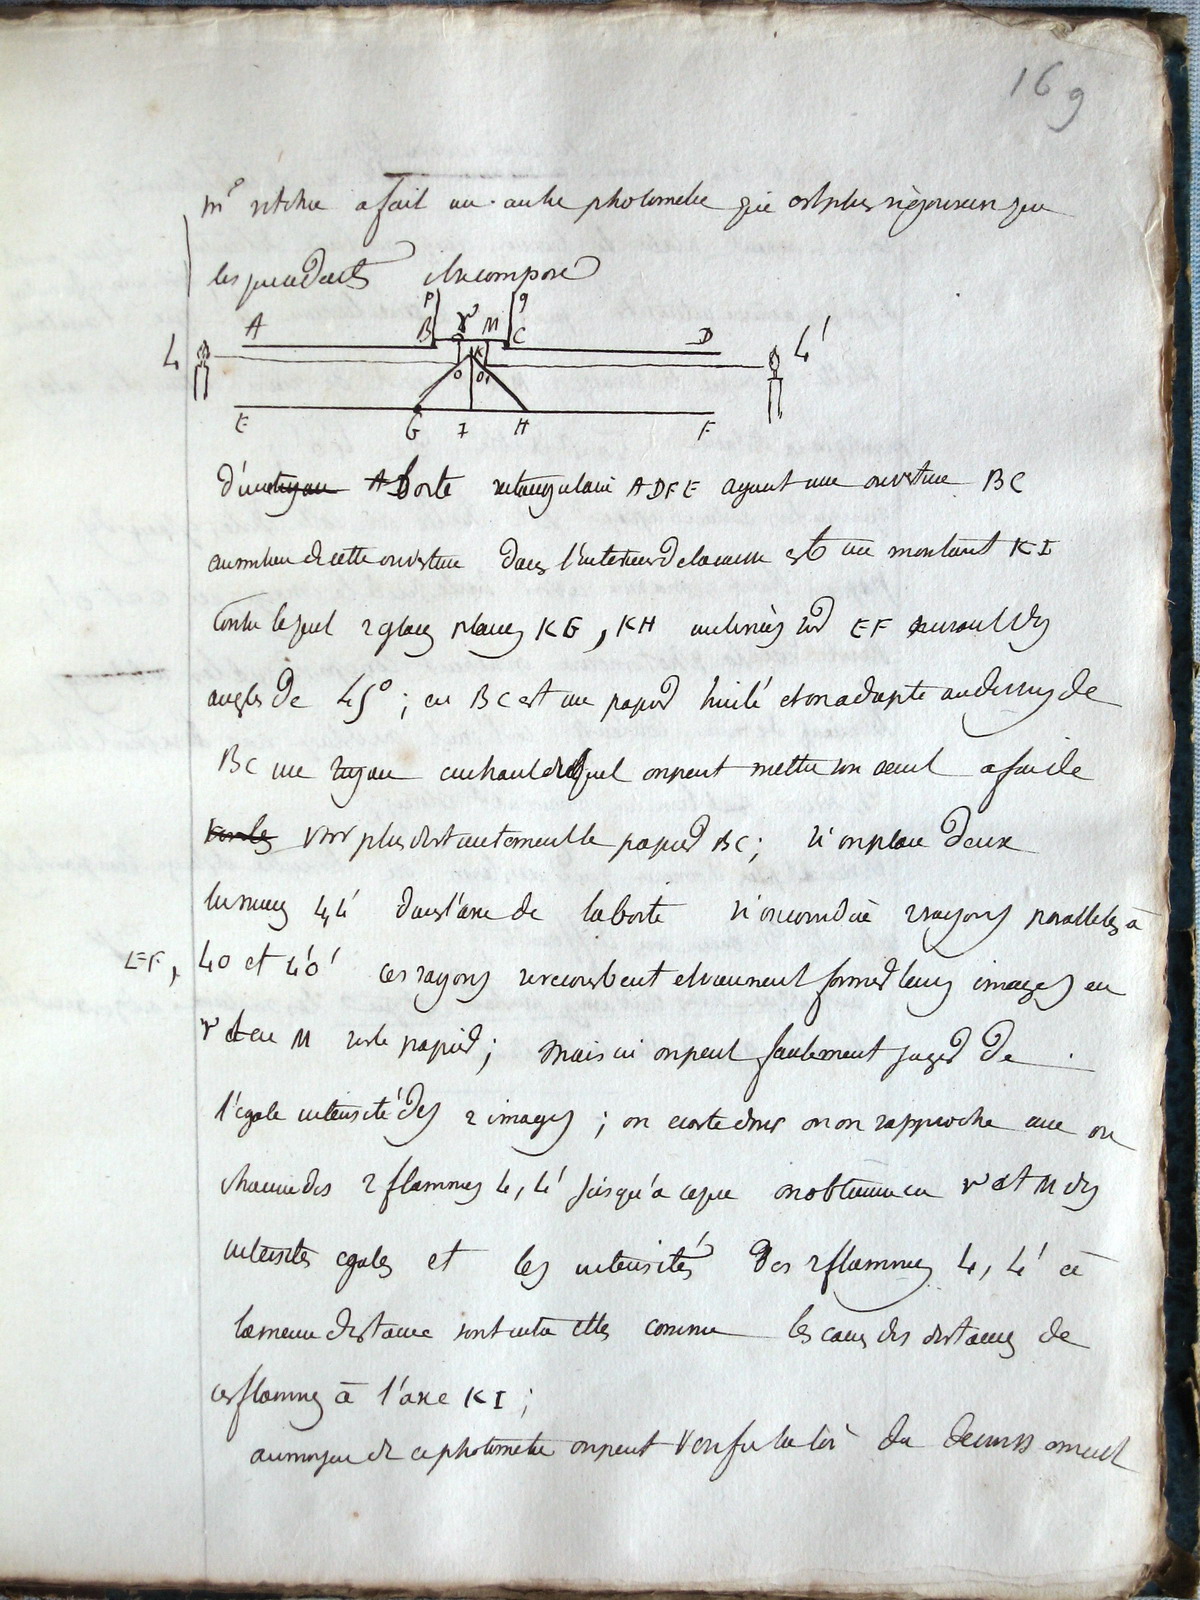 169
mr ritchie a fait un autre photometre qui est plus rigoureux que
les precedents il se compose
p q
A B r M C D
L L'
K
o o'
E G I H F
d'une tuyau A boite rectangulaire ADFE ayant une ouverture BC
au milieu de cette ouverture dans l'interieur de la caisse est un montant KI
contre lequel 2 glaces planes KG, KH inclinées sur EF suivant des
angles de 45°; en BC est un papier huilé et on adapte au dessus de
BC un tuyau en haut duquel on peut mettre un oeil afin de
voir plus distinctement le papier BC; si on place deux
lumieres L, L' dans l'axe de la boite si on considère 2 rayons paralleles à
EF, LO et L'O' ces rayons se recourbent et viennent former leurs images en
r et en M sur le papier; mais ici on peut facilement juger de
l'egale intensité des 2 images; on ecarte donc ou on rapproche une ou
chacune des 2 flammes L, L' jusqu'a ce que on obtienne en r et M des
intensites egales et les intensités des 2 flammes L, L' à
la meme distance sont entre elles comme les carrés des distances de
ces flammes à l'axe KI;
au moyen de ce photometre on peut verifier la loi du decroissement